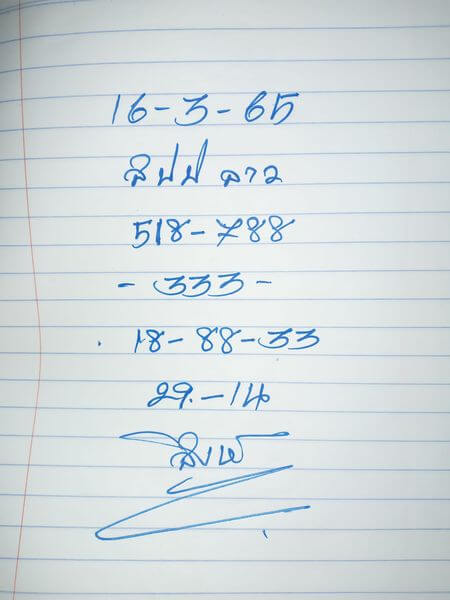 16-3-65
สปป ลาว
518-788
-333-
18-88-33
29.-14